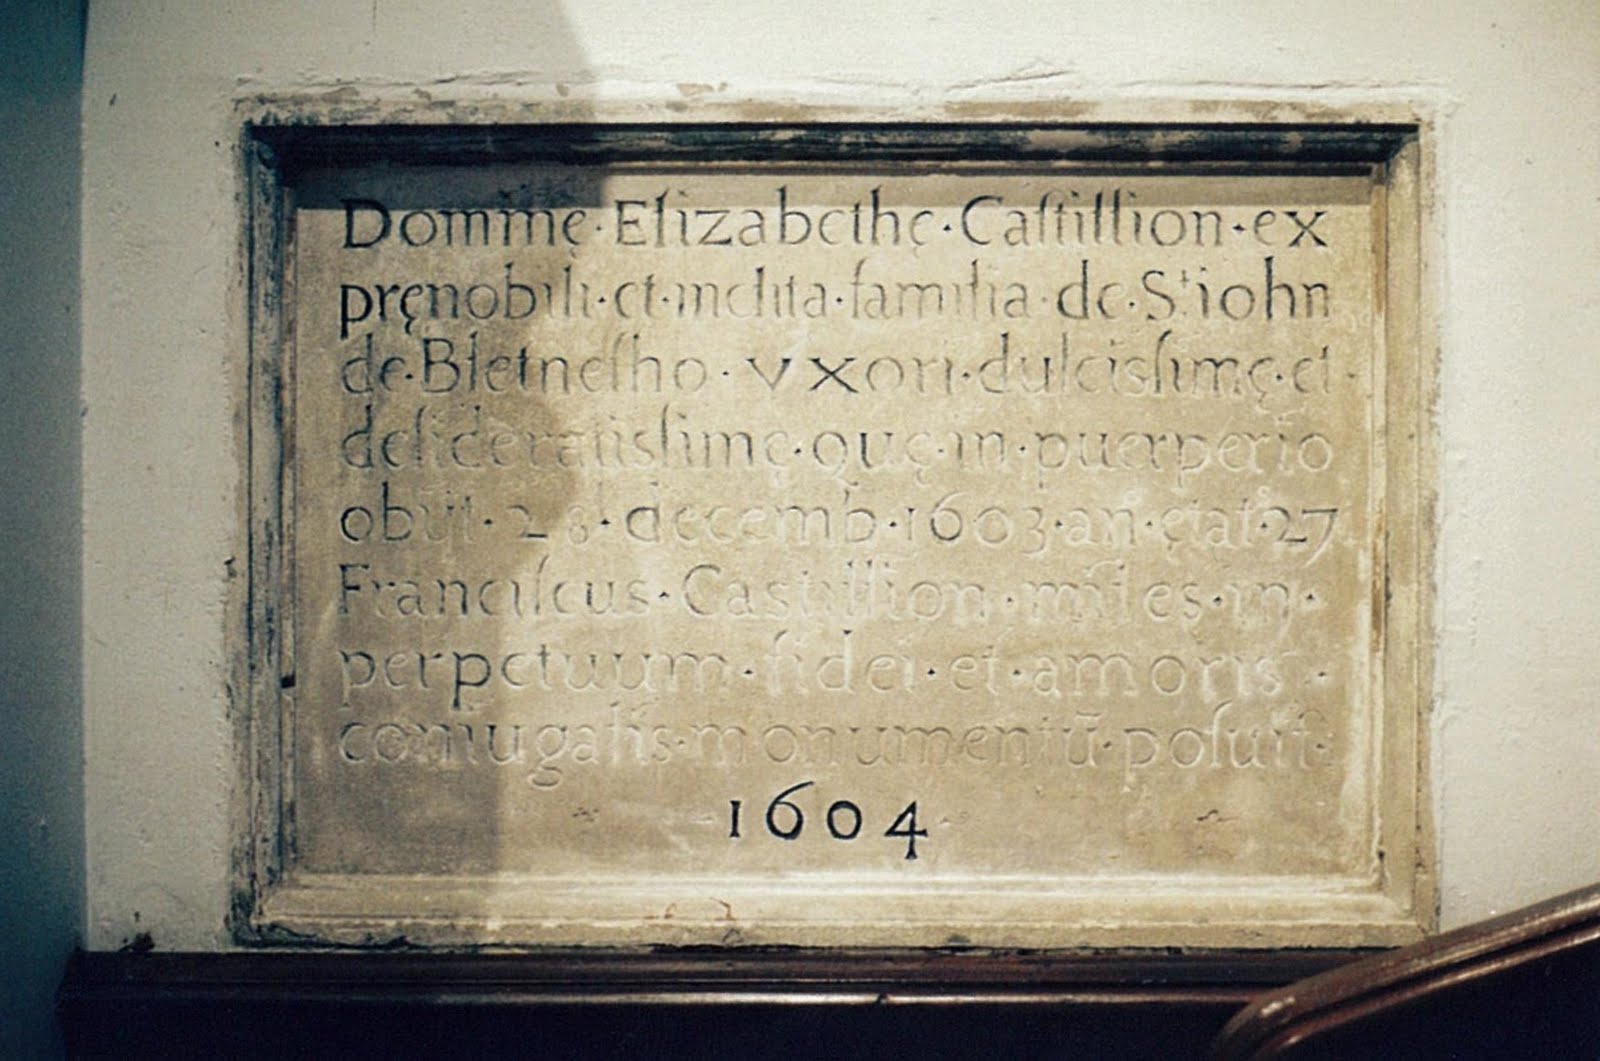 Dominę · Elizabethę · Caſtillion · ex
pręnobili · et · inclita · familia · de · Sᵗ iohn
de · Bletneſho · vxori · dulcisſimę · et ·
deſideratisſimę · quę · in · puerperio
obijt · 28 · decemb · 1603 · añ · ętat · 27
Franciſcus · Castillion · miles · in ·
perpetuum · fidei · et · amoris ·
coniugalis · monumentū · poſuit ·
1604